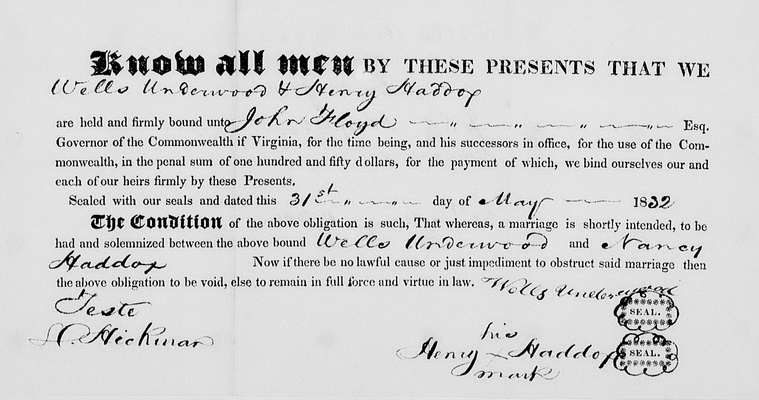 Know all men BY THESE PRESENTS THAT WE
Wells Underwood & Henry Haddox
are held and firmly bound unto John Floyd Esq.
Governor of the Commonwealth if Virginia, for the time being, and his successors in office, for the use of the Com-
monwealth, in the penal sum of one hundred and fifty dollars, for the payment of which, we bind ourselves our and
each of our heirs firmly by these Presents.
Sealed with our seals and dated this 31st day of May 1832
The Condition of the above obligation is such, That whereas, a marriage is shortly intended, to be
had and solemnized between the above bound Wells Underwood and Nancy
Haddox Now if there be no lawful cause or just impediment to obstruct said marriage then
the above obligation to be void, else to remain in full force and virtue in law. Wells Underwood
Teste SEAL.
Hickman his
Henry x Haddox SEAL.
mark